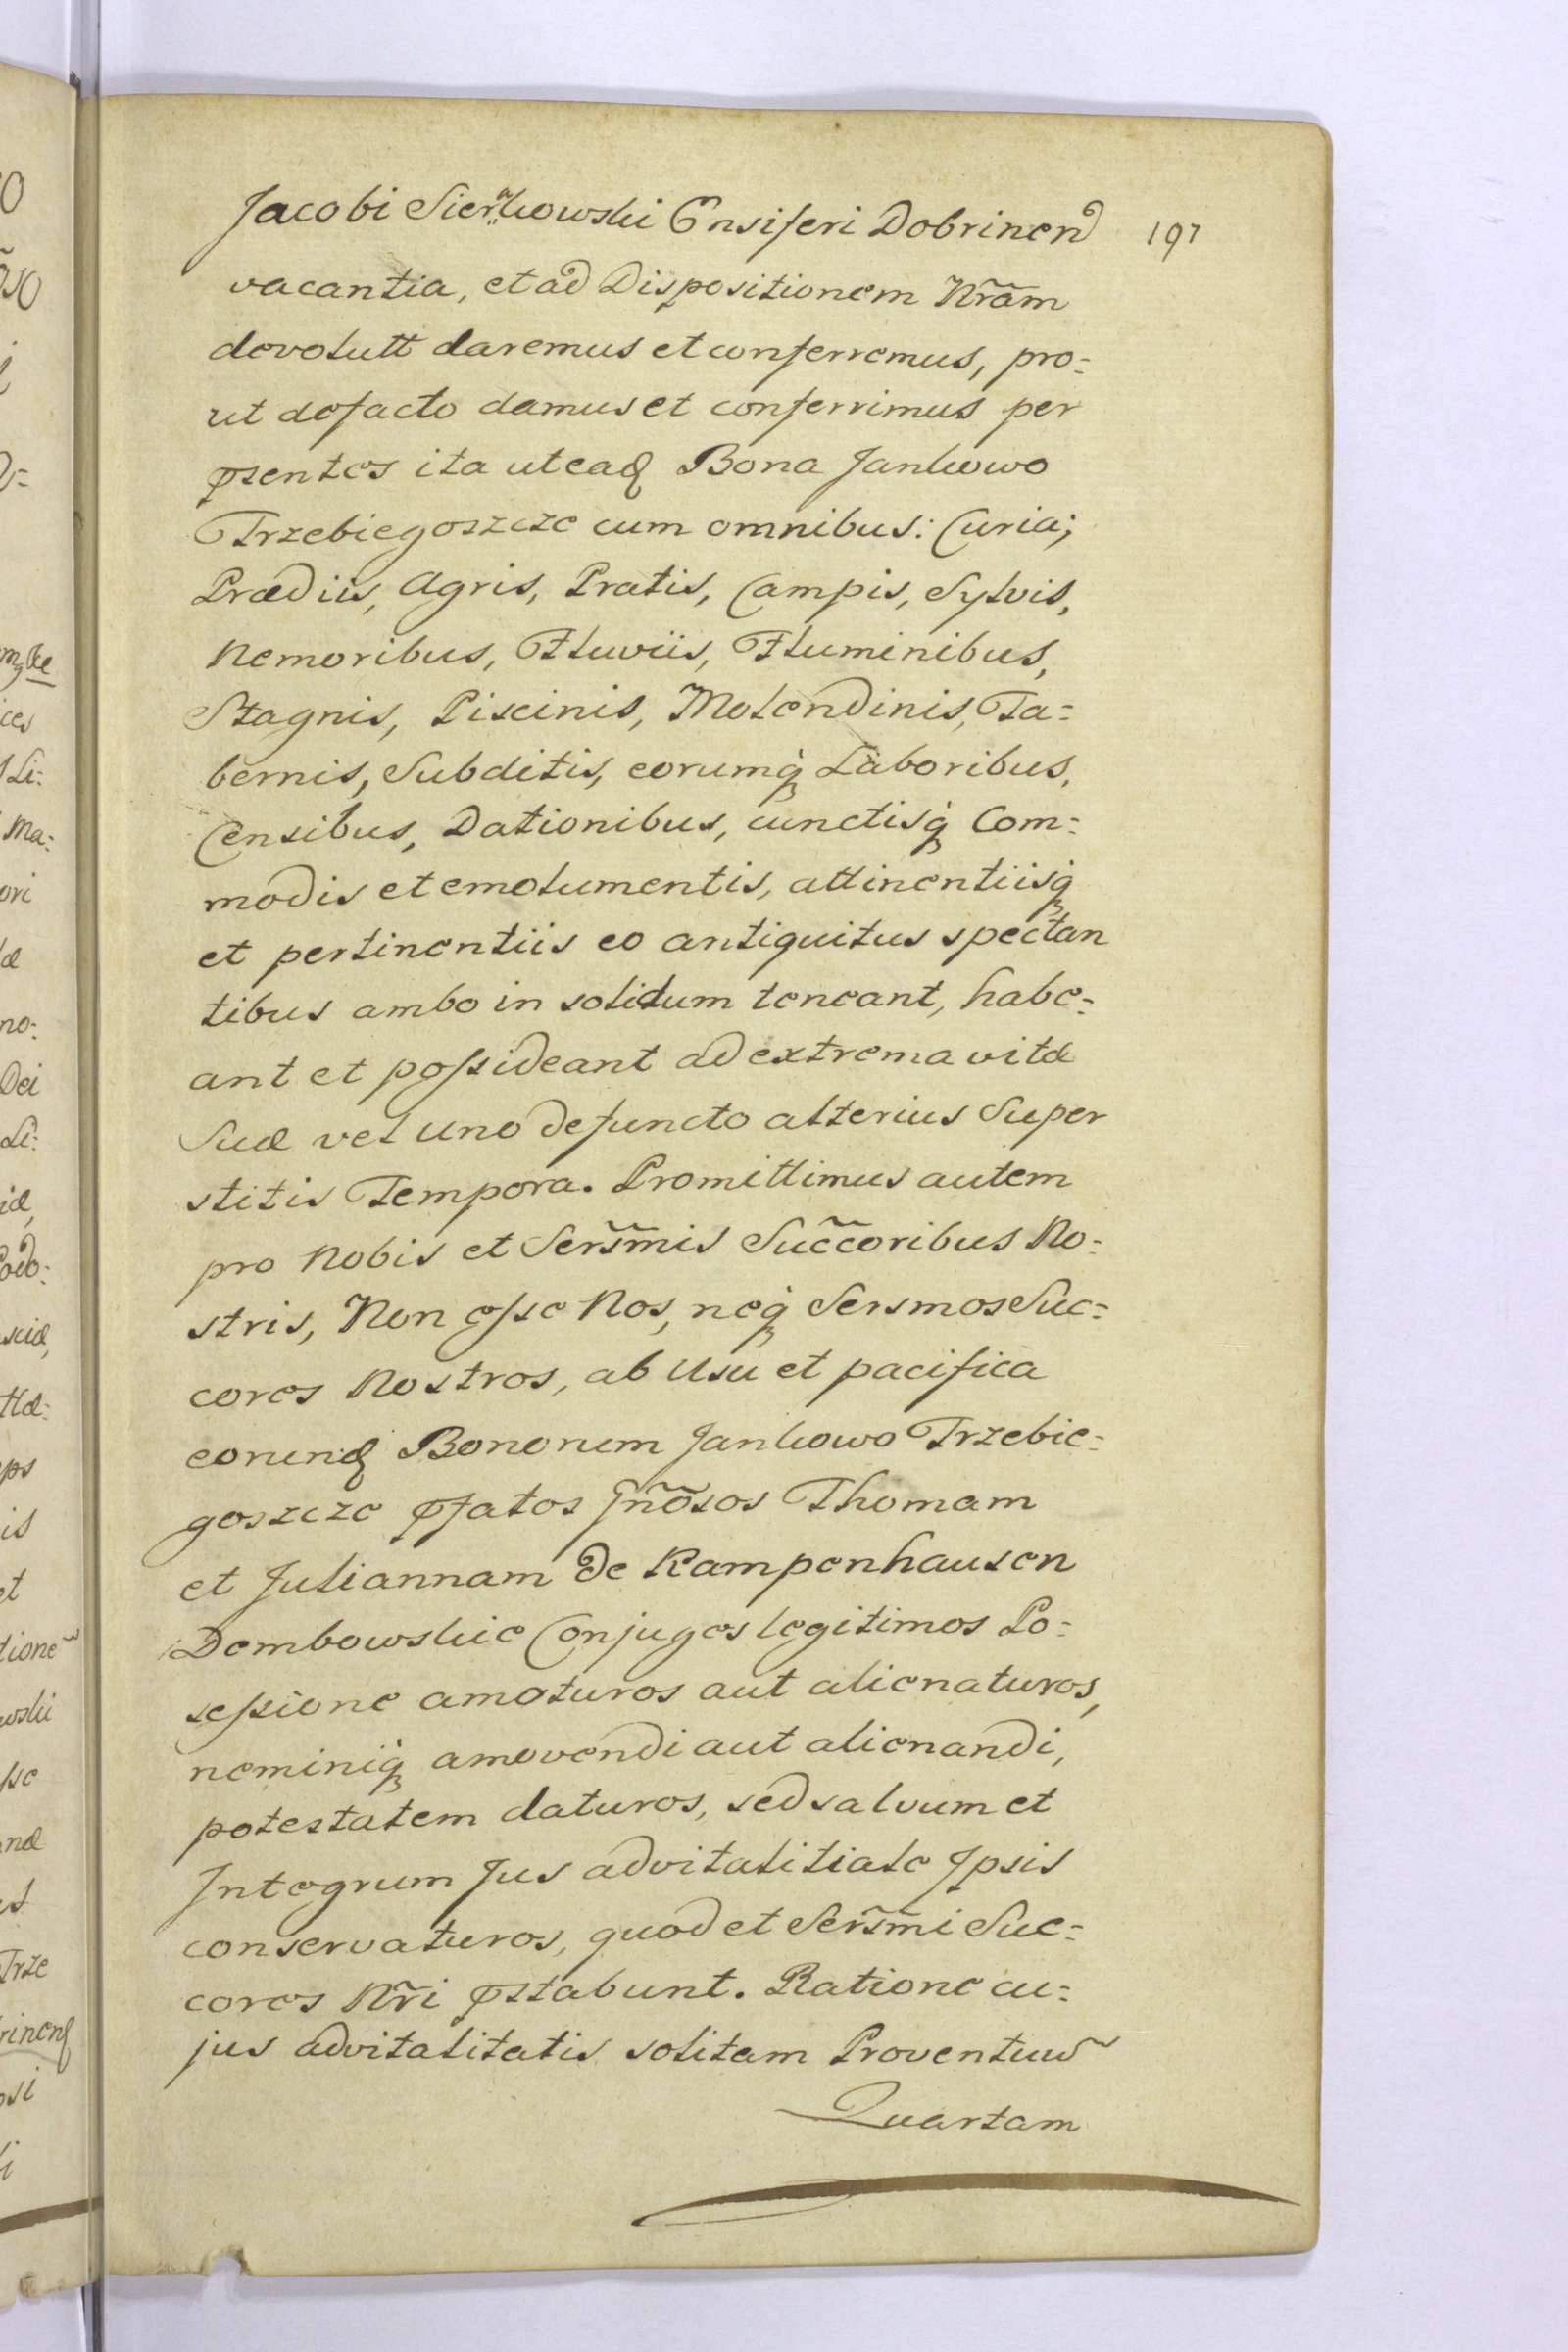 Jacobi Sierakowski Ensiferi Dobrinen 197
vacantia, et ad Dispositionem Nr̃am
devolutt daremus et conferremus, pro=
ut defacto damus et conferrimus per
pzentes ita ut eadq Bona Jankowo
Trzebiegoszcze cum omnibus: Curia;
Prædiis, Agris, Pratis, Campis, Sylvis,
Nemoribus, Fluviis, Fluminibus,
Stagnis, Piscinis, Molendinis, Ta=
bernis, Subditis, eorumq Laboribus,
Censibus, Dationibus, cunctisq Com=
modis et emolumentis, attinentiisq
et pertinentiis eo antiquitus spectan
tibus ambo in solidum teneant, habe=
ant et possideant ad extrema vitæ
Suæ vel uno defuncto alterius Super
stitis Tempora. Promittimus autem
pro Nobis et Sers̃mis Succ̃oribus No=
stris, Non esse Nos, neq Sersmos Suc=
cores Nostros, ab Usu et pacifica
eorund Bonorum Jankowo Trzebie=
goszcze pfatos Gñosos Thomam
et Juliannam de Kampenhausen
Dembowskie Conjuges legitimos Po=
sessione amoturos aut alienaturos,
neminiq amovendi aut alienandi,
potestatem daturos, sed salvum et
Integrum Jus advitalitiale Ipsis
conservaturos, quod et Sers̃mi Suc=
cores Nr̃i pstabunt. Ratione cu=
jus advitalitatis solitam Proventuũ
Quartam